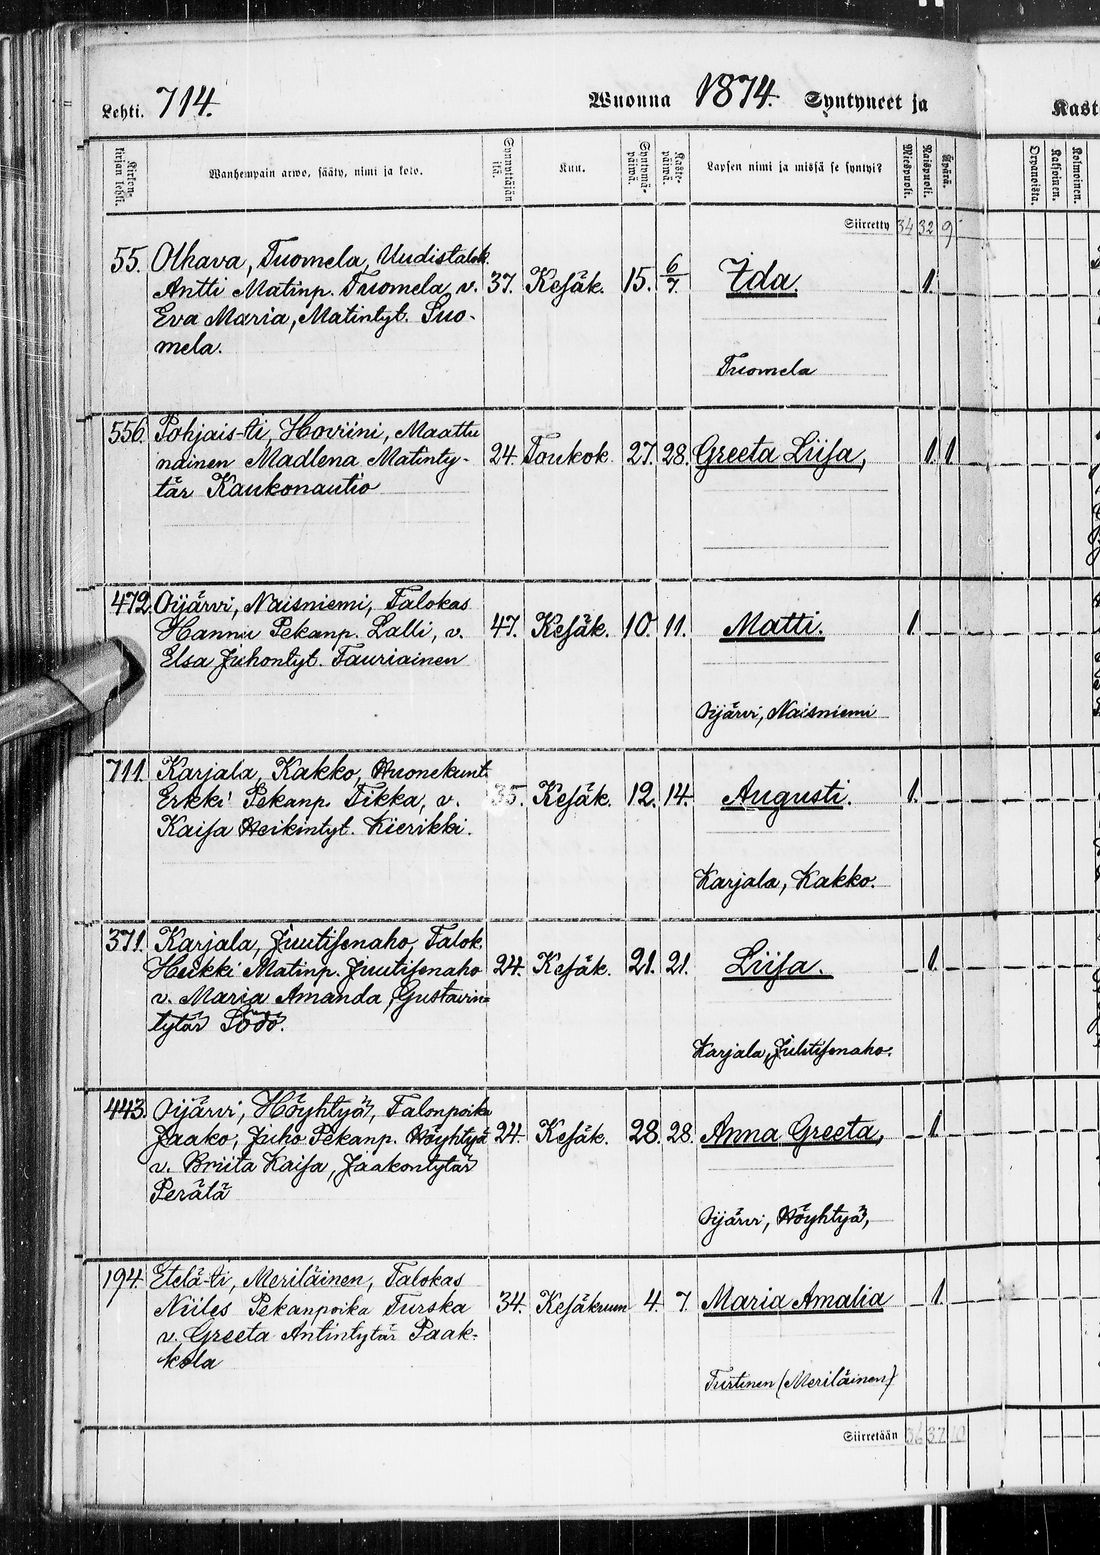 Lehti. 714. Wuonna 1874. Syntyneet ja Kast
Kirkon-kirjan lehti. Wanhempain arwo, sääty, nimi ja koto. Synnyttäjän ikä. Kuu. Syntymä-päiwä. Kaste-päiwä. Lapsen nimi ja missä se syntyi? Miespuoli. Naispuoli. Äpärä. Orpanoista. Kaksoinen. Kolmoinen.
Siirretty 34 32 9
55. Olhava, Tuomela, Uudistalok.
Antti Matinp. Tuomela, v. 37. Kesäk. 15. 6/7. Ida. 1.
Eva Maria, Matintyt. Suo-
mela.
Tuomela
556. Pohjais-ti, Hoviini, Maattu
nainen Madlena Matinty- 24. Toukok. 27. 28. Greeta Liisa, 1 1
tär Kaukonautio
472. Oijärvi, Naisniemi, Talokas
Hannu Pekanp. Lalli, v. 47. Kesäk. 10. 11. Matti. 1
Elsa Juhontyt. Tauriainen
Oijärvi, Naisniemi
711. Karjala, Kakko, Huonekunt.
Erkki Pekanp. Tikka, v. 35. Kesäk. 12. 14. Augusti. 1.
Kaisa Heikintyt. Kierikki.
Karjala, Kakko.
371. Karjala, Juutisenaho, Talok.
Heikki Matinp. Juutisenaho 24. Kesäk. 21. 21. Liisa. 1.
v. Maria Amanda, Gustavin=
tytär Södö.
Karjala, Juutisenaho.
443. Oijärvi, Höyhtyä, Talonpoika
Jaako, Juho Pekanp. Höyhtyä 24. Kesäk. 28. 28. Anna Greeta, 1.
v. Briita Kaisa, Jaakontytär
Perätä
Oijärvi, Höyhtyä,
194. Etelä-ti, Meriläinen, Talokas
Niiles Pekanpoika Turska 34. Kesäkuun 4. 7. Maria Amalia 1.
v. Greeta Antintytär Paak-
kola
Turtinen (Meriläinen)
Siirretään 36 37 10